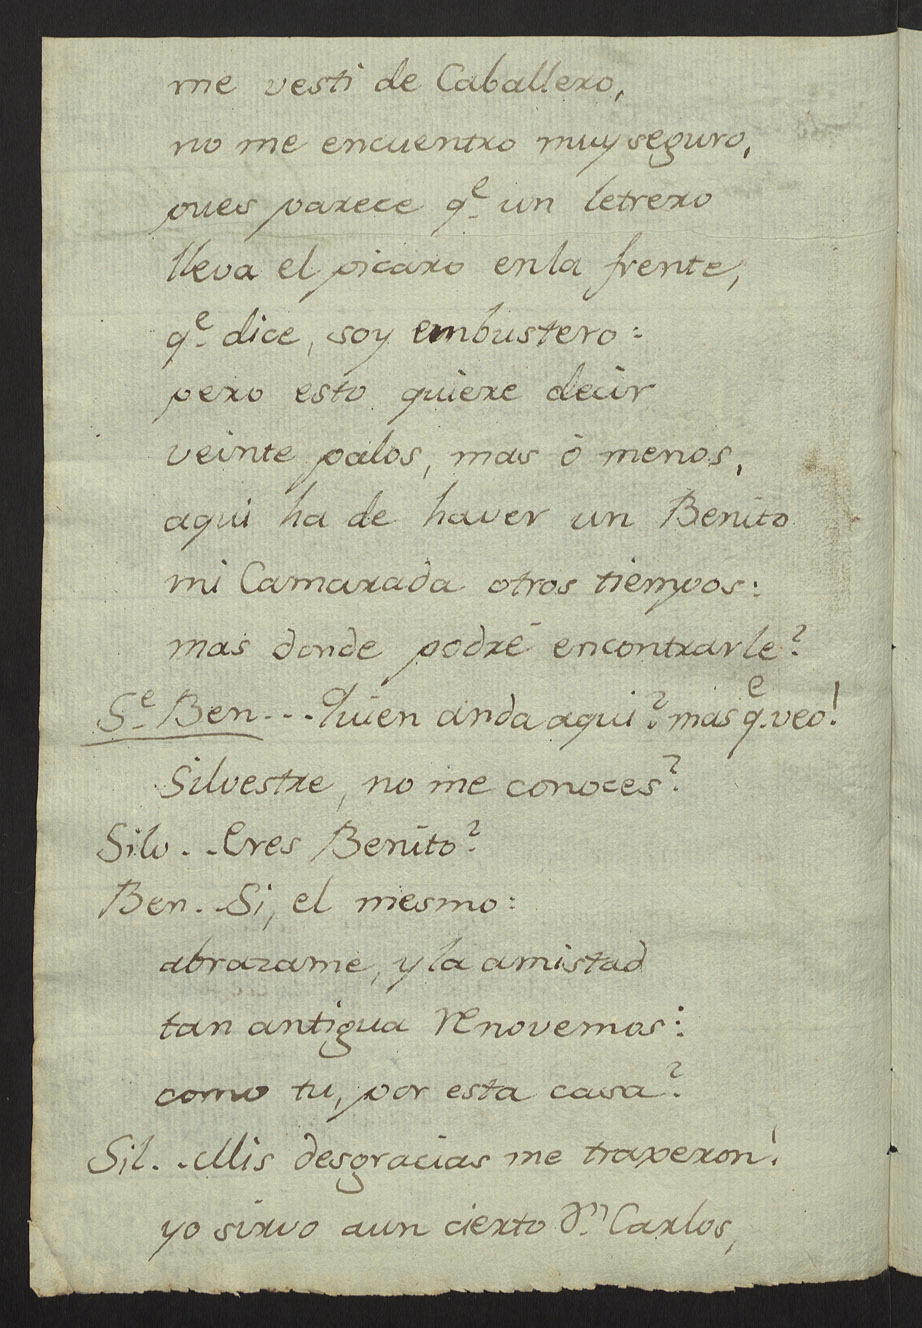 me vesti de Caballero,
no me encuentro muy seguro,
pues parece q.e un letrero
lleva el picaro enla frente,
q.e dice, soy embustero:
pero esto quiere decir
veinte palos, mas ò menos,
aqui ha de haver un Benito
mi Camarada otros tiempos:
mas donde podrè encontrarle?
S.e Ben... Quien anda aqui? mas q.e veo!
Silvestre, no me conoces?
Silv. . Eres Benito?
Ben. . Si, el mesmo:
abrazame, y la amistad
tan antigua renovemos:
como tu, por esta casa?
Sil. . Mis desgracias me traxeron!
yo sirvo aun cierto D.n Carlos,